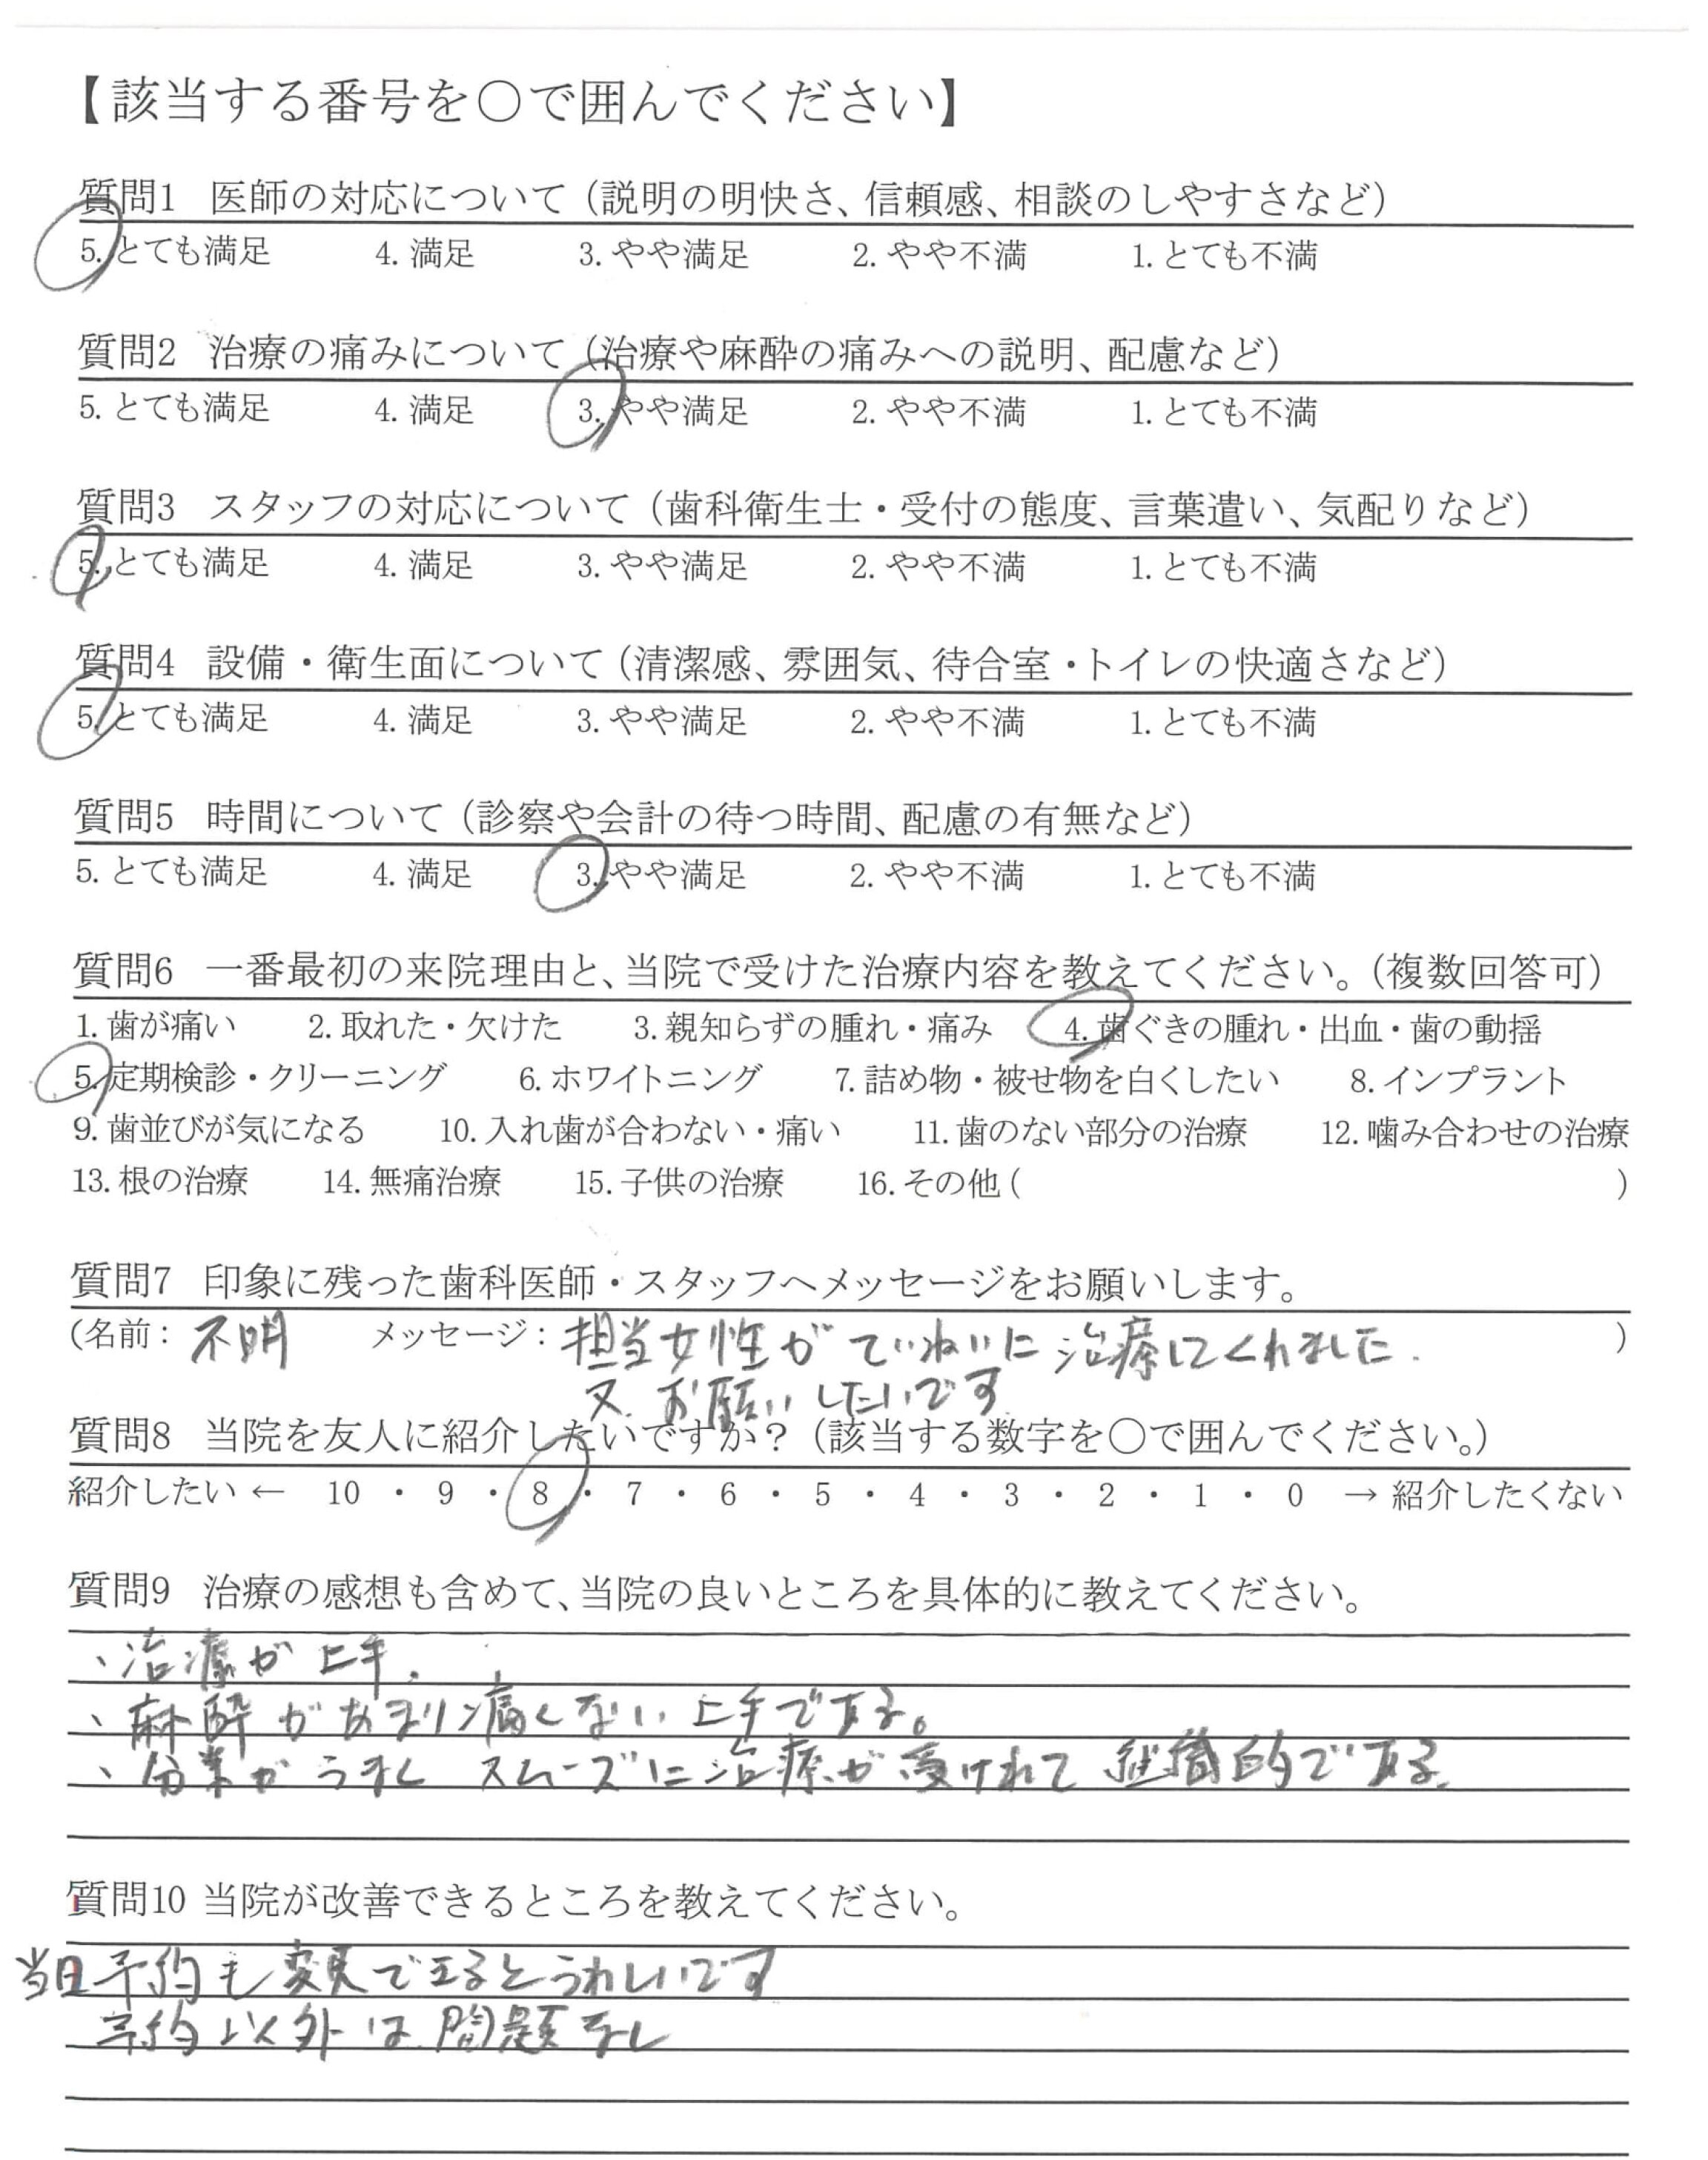 【該当する番号を○で囲んでください】
質問1 医師の対応について（説明の明快さ、信頼感、相談のしやすさなど）
5. とても満足 4. 満足 3. やや満足 2. やや不満 1. とても不満
質問2 治療の痛みについて（治療や麻酔の痛みへの説明、配慮など）
5. とても満足 4. 満足 3. やや満足 2. やや不満 1. とても不満
質問3 スタッフの対応について（歯科衛生士・受付の態度、言葉遣い、気配りなど）
5. とても満足 4. 満足 3. やや満足 2. やや不満 1. とても不満
質問4 設備・衛生面について（清潔感、雰囲気、待合室・トイレの快適さなど）
5. とても満足 4. 満足 3. やや満足 2. やや不満 1. とても不満
質問5 時間について（診察や会計の待つ時間、配慮の有無など）
5. とても満足 4. 満足 3. やや満足 2. やや不満 1. とても不満
質問6 一番最初の来院理由と、当院で受けた治療内容を教えてください。（複数回答可）
1. 歯が痛い 2. 取れた・欠けた 3. 親知らずの腫れ・痛み 4. 歯ぐきの腫れ・出血・歯の動揺
5. 定期検診・クリーニング 6. ホワイトニング 7. 詰め物・被せ物を白くしたい 8. インプラント
9. 歯並びが気になる 10. 入れ歯が合わない・痛い 11. 歯のない部分の治療 12. 噛み合わせの治療
13. 根の治療 14. 無痛治療 15. 子供の治療 16. その他（ ）
質問7 印象に残った歯科医師・スタッフへメッセージをお願いします。
（名前：不明 メッセージ：担当女性がていねいに治療してくれました. ）
又、お願いしたいです
質問8 当院を友人に紹介したいですか？（該当する数字を○で囲んでください。）
紹介したい ← 10 ・ 9 ・ 8 ・ 7 ・ 6 ・ 5 ・ 4 ・ 3 ・ 2 ・ 1 ・ 0 → 紹介したくない
質問9 治療の感想も含めて、当院の良いところを具体的に教えてください。
、治療が上手.
、麻酔があまり痛くない 上手である。
、分業がうまく スムーズに治療が受けれて 組織的である.
質問10 当院が改善できるところを教えてください。
当日予約も変更できるとうれしいです
予約以外は問題なし